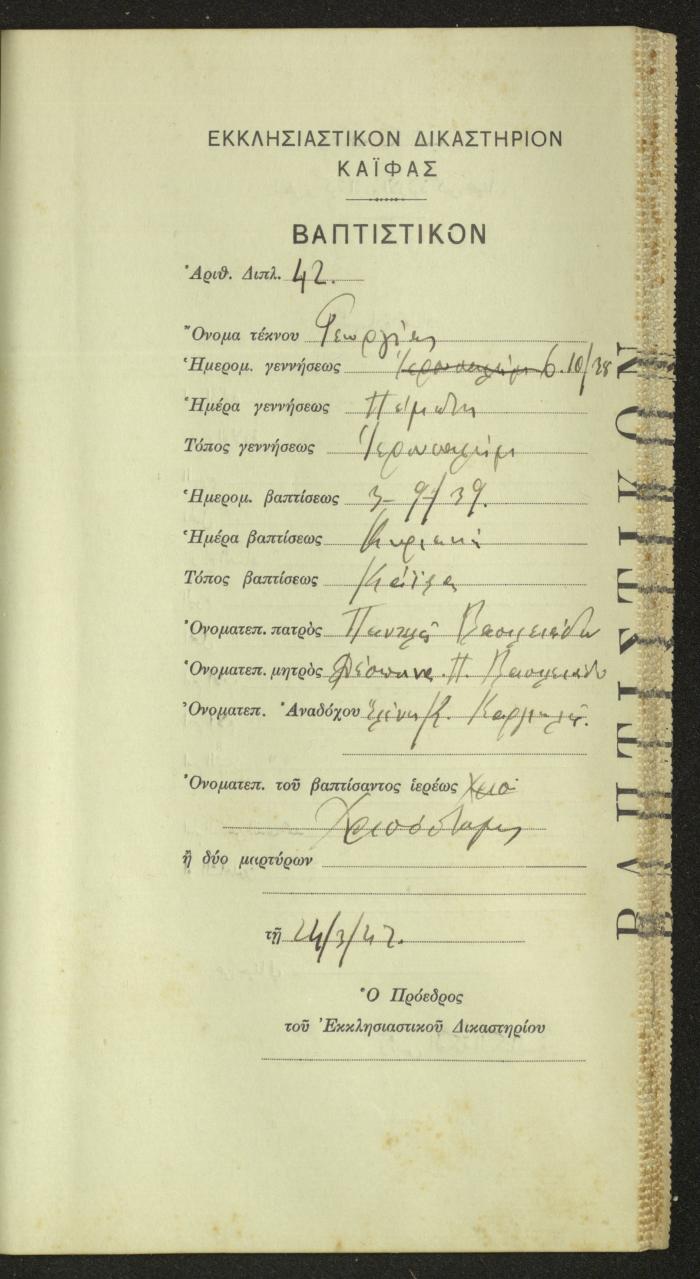 ΕΚΚΛΗΣΙΑΣΤΙΚΟΝ ΔΙΚΑΣΤΗΡΙΟΝ
ΚΑΪΦΑΣ
ΒΑΠΤΙΣΤΙΚΟΝ
Ἀριθ. Διπλ. 42.
Ὄνομα τέκνου Γεωργίας
Ἡμερομ. γεννήσεως Ἱερουσαλήμ 6.10/38
Ἡμέρα γεννήσεως Πέμπτη
Τόπος γεννήσεως Ἱερουσαλήμ
Ἡμερομ. βαπτίσεως 3-9/39.
Ἡμέρα βαπτίσεως Κυριακή
Τόπος βαπτίσεως Κάϊφα
Ὀνοματεπ. πατρὸς Παντελῆ Βασιλειάδη
Ὀνοματεπ. μητρὸς Δέσποινα Π. Βασιλειάδη
Ὀνοματεπ. Ἀναδόχου Ἑλένη Κ.
Ὀνοματεπ. τοῦ βαπτίσαντος ἱερέως
Χρυσόστομος
ἢ δύο μαρτύρων
τῇ 24/3/42.
Ὁ Πρόεδρος
τοῦ Ἐκκλησιαστικοῦ Δικαστηρίου
ΒΑΠΤΙΣΤΙΚΟΝ